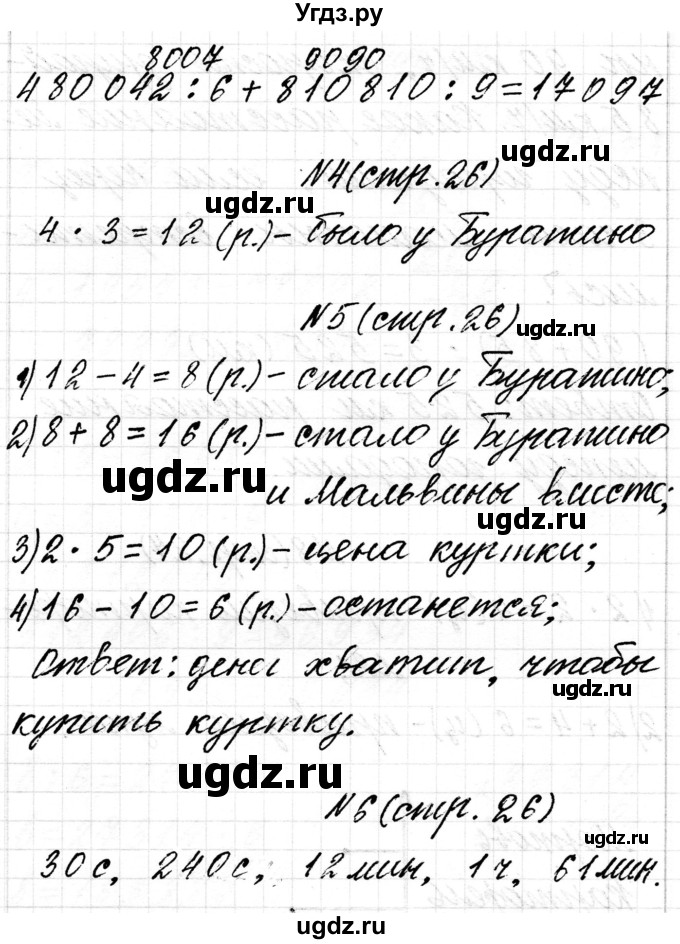 Угдз.ру
8007 9090
480042 : 6 + 810810 : 9 = 17097
N4 (стр. 26)
ugdz.ru
4 · 3 = 12 (р.) – было у Буратино
N5 (стр. 26)
ugdz.ru
1) 12 – 4 = 8 (р.) – стало у Буратино;
2) 8 + 8 = 16 (р.) – стало у Буратино
ugdz.ru
и Мальвины вместе;
ugdz.ru
3) 2 · 5 = 10 (р.) – цена куртки;
4) 16 – 10 = 6 (р.) – останется;
Ответ: денег хватит, чтобы
ugdz.ru
купить куртку.
ugdz.ru
N6 (стр. 26)
ugdz.ru
30 с, 240 с, 12 мин, 1 ч, 61 мин.
ugdz.ru